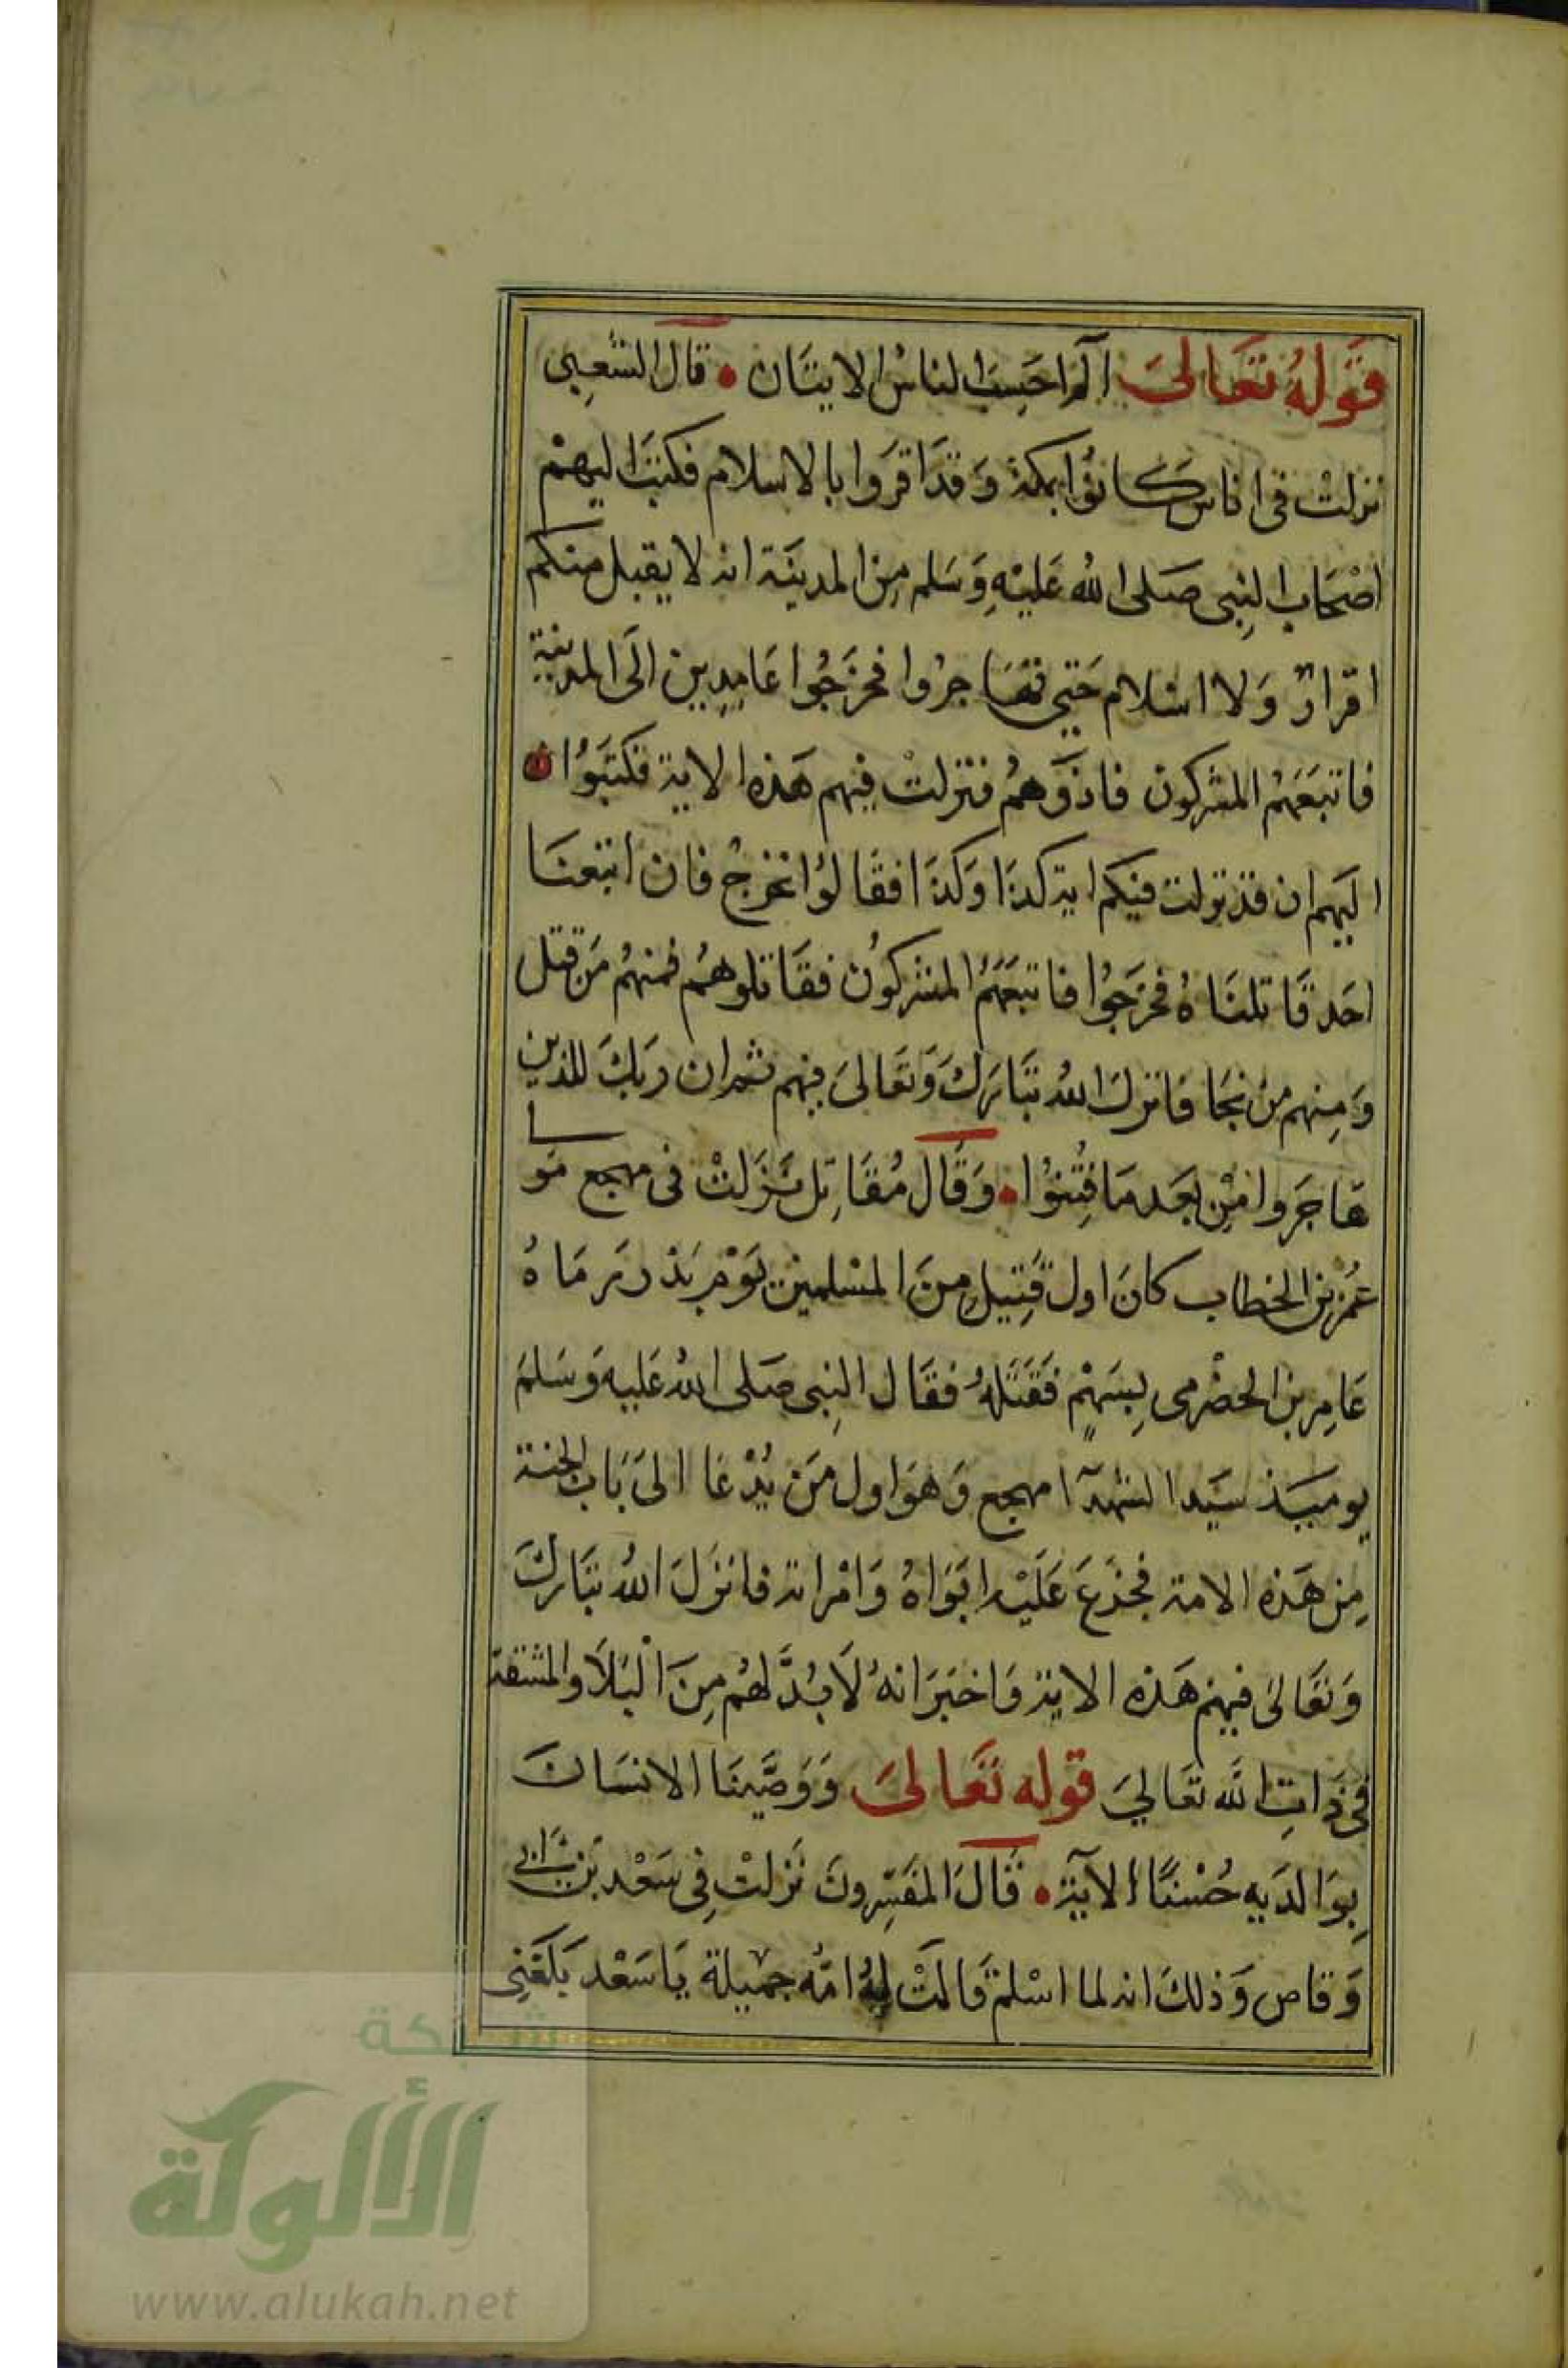 قوله تعالى الم احسب الناس الايتان • قال الشعبي
نزلت فى اناس كانوا بمكة وقد اقروا بالاسلام فكتب اليهم
اصحاب النبي صلى الله عليه وسلم من المدينة انه لا يقبل منكم
اقرار ولا اسلام حتي تهاجروا فخرجوا عامدين الى المدينة
فاتبعهم المشركون فاذوهم فنزلت فيهم هذه الاية فكتبوا
اليهم ان قد نزلت فيكم اية كذا وكذا فقالوا نخرج فان اتبعنا
احد قاتلناه فخرجوا فاتبعهم المشركون فقاتلوهم فمنهم من قتل
ومنهم من نجا فانزل الله تبارك وتعالى فيهم ثم ان ربك للذين
هاجروا من بعد ما فتنوا • وقال مقاتل نزلت فى مهجع مولى
عمر بن الخطاب كان اول قتيل من المسلمين يوم بدر رماه
عامر بن الحضرمى بسهم فقتله فقال النبى صلى الله عليه وسلم
يوميذ سيد الشهدآ مهجع وهو اول من يدعا الى باب الجنة
من هذه الامة فجزع عليه ابواه وامراته فانزل الله تبارك
وتعالى فيهم هذه الاية واخبر انه لا بد لهم من البلا والمشقة
فى ذات الله تعالي قوله تعالى ووصينا الانسان
بوالديه حسنا الآية • قال المفسرون نزلت فى سعد بن ابي
وقاص وذلك انه لما اسلم قالت له امه جميلة يا سعد بلغني
شبكة
الألوكة
www.alukah.net